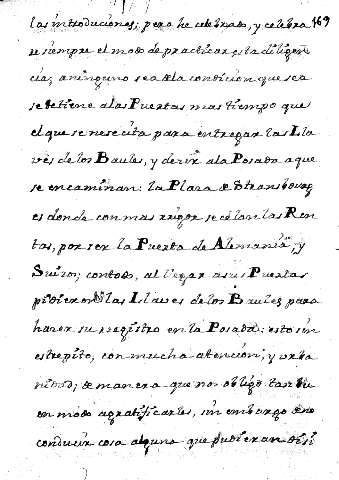 las introduciones; pero he celebrado, y celebra 169
re siempre el modo de practicar esta diligen
cia; a ninguno sea de la condicion que sea
se detiene a las Puertas mas tiempo que
el que se nesecita para entregar las Lla
ves de los Baules, y de ir a la Posada a que
se encaminan: la Plaza de Stransbourg
es donde con mas rrigor se celan las Ren
tas, por ser la Puerta de Alemania, y
Suizos; con todo, al llegar a sus Puertas
pidieron las Llaves de los Baules para
hazer su rregistro en la Posada: esto sin
estrepito, con mucha atencion, y urba
nidad; de manera que nos obligò tambien
en modo agratificarles, sin embargo de no
conducir cosa alguna que pudieran disi